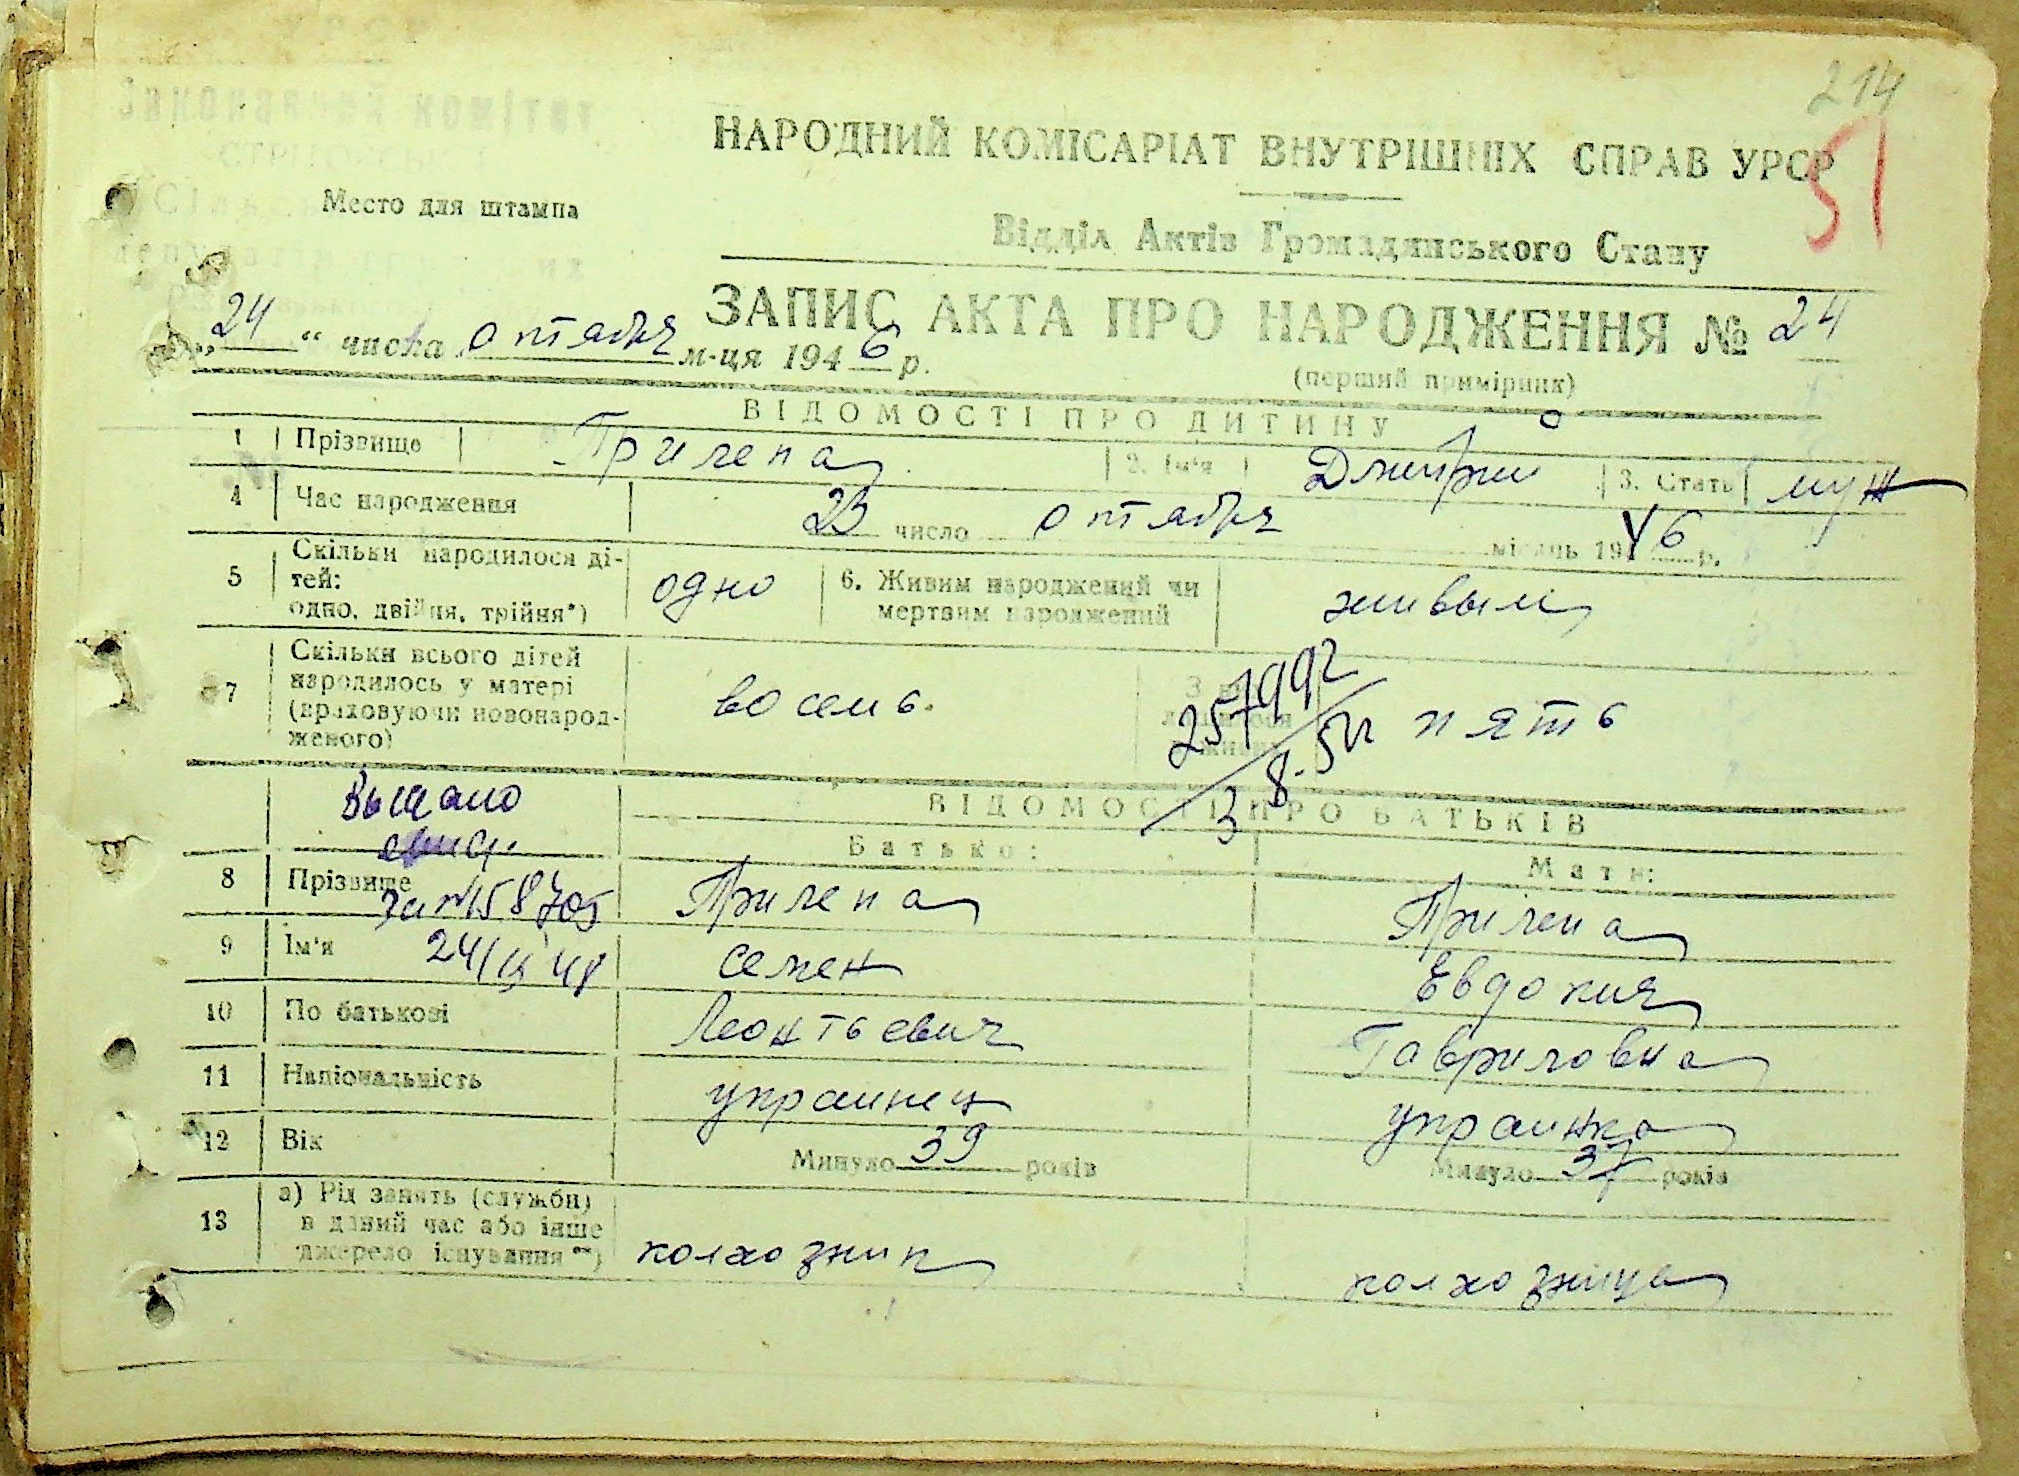 214
51
Виконавчий комітет
Место для штампа
НАРОДНИЙ КОМІСАРІАТ ВНУТРІШНІХ СПРАВ УРСР
Відділ Актів Громадянського Стану
ЗАПИС АКТА ПРО НАРОДЖЕННЯ № 24
„24“ числа октября м-ця 1946 р.
(перший примірник)
ВІДОМОСТІ ПРО ДИТИНУ
1 Прізвище Прилепа 2. Ім'я Дмитрий 3. Стать муж
4 Час народження 23 число октября місяць 1946 р.
5 Скільки народилося ді-
тей:
одно, двійня, трійня*) одно 6. Живим народжений чи
мертвим народжений живым
7 Скільки всього дітей
народилось у матері
(враховуючи новонарод-
женого) восемь. З них
лишилося
живих пять
257992
3 8.5
Выдано
ВІДОМОСТІ ПРО БАТЬКІВ
Батько: Мати:
8 Прізвище Прилепа Прилепа
за № 158705
9 Ім'я Семен Евдокия
24/ 48
10 По батькові Леонтьевич Гавриловна
11 Національність украинец украинка
12 Вік Минуло 39 років Минуло 37 років
13 а) Рід занять (служби)
в даний час або інше
джерело існування **) колхозник колхозница